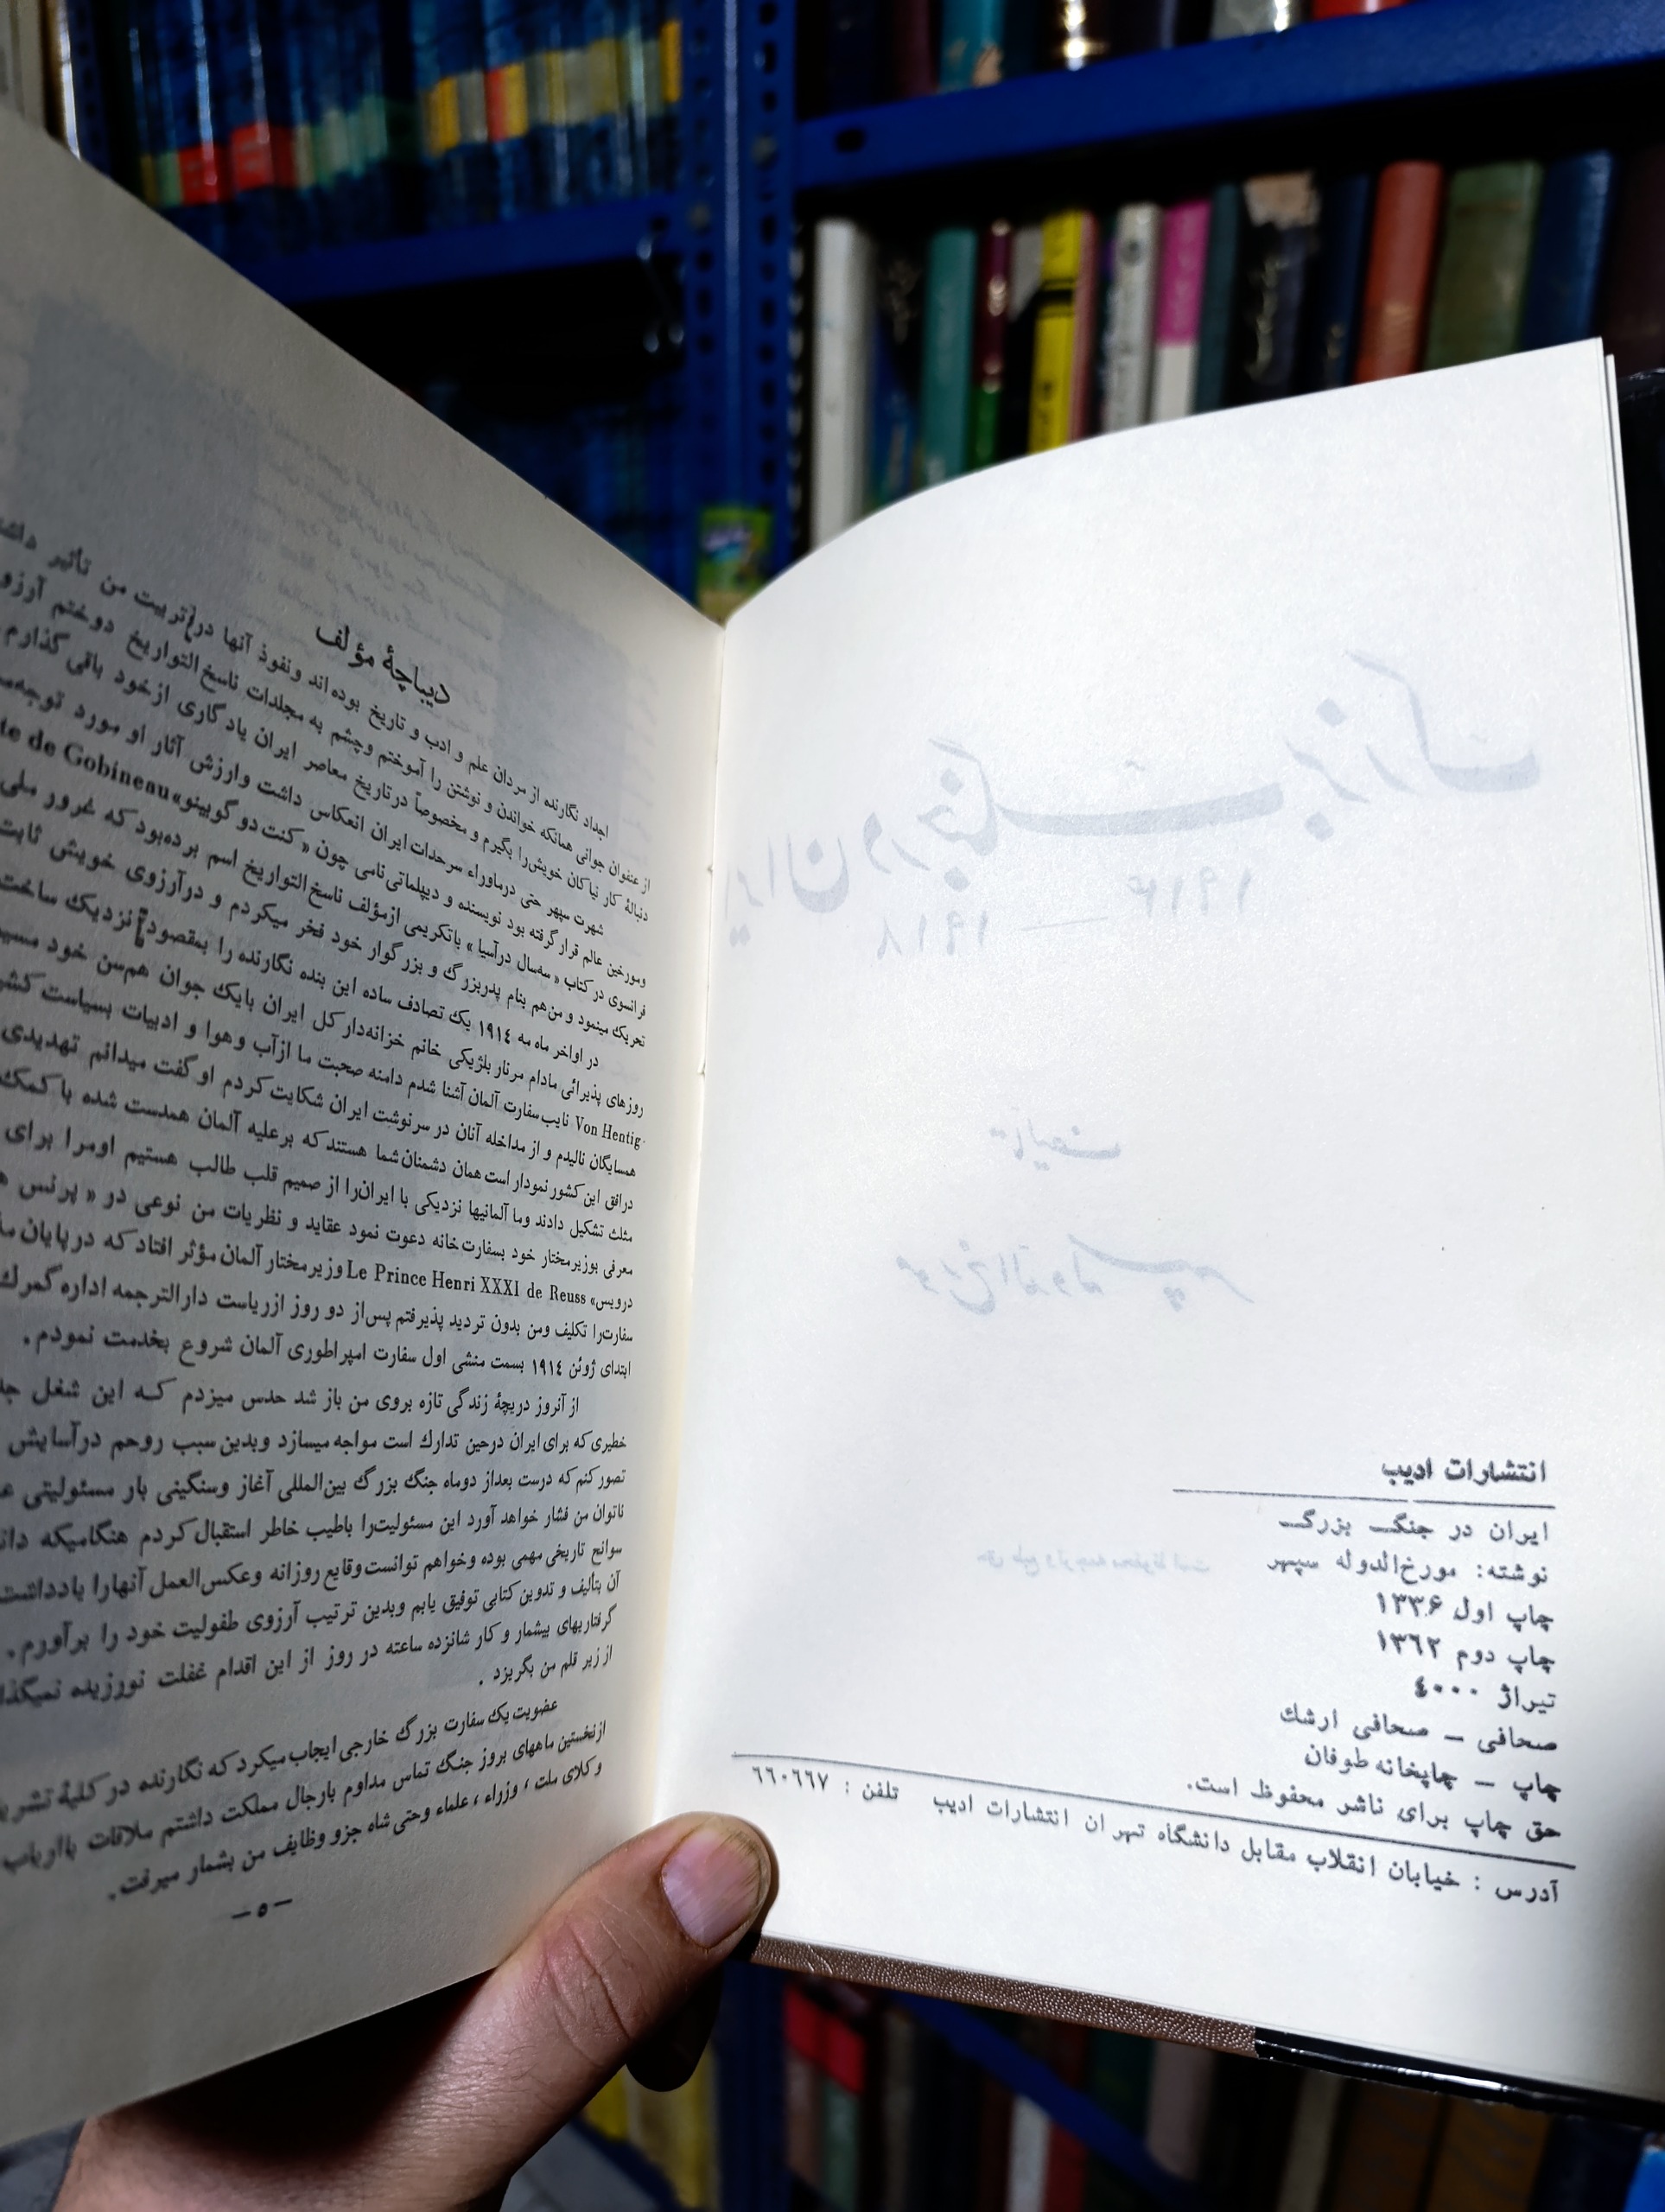 انتشارات ادیب
ایران در جنگ بزرگ
نوشته: مورخ‌الدوله سپهر
چاپ اول ۱۳۳۶
چاپ دوم ۱۳٦۲
تیراژ ٤۰۰۰
صحافی – صحافی ارشك
چاپ – چاپخانه طوفان
حق چاپ برای ناشر محفوظ است.
آدرس : خیابان انقلاب مقابل دانشگاه تهران انتشارات ادیب تلفن : ٦٦۰٦٦۷
دیباچهٔ مؤلف
اجداد نگارنده از مردان علم و ادب و تاریخ بوده‌اند ونفوذ آنها در تربیت من تأثیر
از عنفوان جوانی همانکه خواندن و نوشتن را آموختم وچشم به مجلدات ناسخ التواریخ دوختم
دنبالهٔ کار نیاکان خویش‌را بگیرم و مخصوصاً درتاریخ معاصر ایران یادگاری ازخود باقی گذارم
شهرت سپهر حتی درماوراء سرحدات ایران انعکاس داشت وارزش آثار او مورد
ومورخین عالم قرارگرفته بود نویسنده و دیپلماتی‌نامی چون «کنت دو گوبینو» de Gobineau
فرانسوی در کتاب «سه‌سال درآسیا» باتکریمی ازمؤلف ناسخ‌التواریخ اسم برده‌بود که غرور ملی
تحریك مینمود و من‌هم بنام پدربزرگ و بزرگوار خود فخر میکردم و درآرزوی خویش ثابت
در اواخر ماه مه ۱۹۱٤ یك تصادف ساده این بنده نگارنده را بمقصود نزدیك ساخت
روزهای پذیرائی مادام مرنار بلژیکی خانم خزانه‌دار کل ایران بایك جوان هم‌سن خود
Von Hentig نایب‌سفارت آلمان آشنا شدم دامنه صحبت ما ازآب وهوا و ادبیات بسیاست
همسایگان نالیدم و از مداخله آنان در سرنوشت ایران شکایت‌کردم او گفت میدانم تهدیدی
درافق این‌کشور نمودار است همان دشمنان‌شما هستندکه برعلیه آلمان همدست شده با کمك
مثلث تشکیل دادند وما آلمانیها نزدیکی با ایران‌را از صمیم قلب طالب هستیم اومرا برای
معرفی بوزیرمختار خود بسفارت‌خانه دعوت نمود عقاید و نظریات من نوعی در «پرنس
درویس» Le Prince Henri XXXI de Reuss وزیرمختار آلمان مؤثر افتاد که درپایان
سفارت‌را تکلیف ومن بدون تردید پذیرفتم پس‌از دو روز ازریاست دارالترجمه اداره گمرك
ابتدای ژوئن ۱۹۱٤ بسمت منشی اول سفارت امپراطوری آلمان شروع بخدمت نمودم.
از آنروز دریچهٔ زندگی تازه بروی من باز شد حدس میزدم که این شغل
خطیری که برای ایران درحین تدارك است مواجه میسازد وبدین‌سبب روحم درآسایش
تصورکنم‌که درست بعداز دوماه جنگ بزرگ بین‌المللی آغاز وسنگینی بار مسئولیتی
ناتوان من فشار خواهد آورد این مسئولیت‌را باطیب خاطر استقبال‌کردم هنگامیکه
سوانح تاریخی مهمی بوده وخواهم توانست‌وقایع روزانه وعکس‌العمل آنهارا یادداشت
آن بتألیف و تدوین کتابی توفیق یابم وبدین ترتیب آرزوی طفولیت خود را برآورم.
گرفتاریهای بیشمار و کار شانزده ساعته در روز از این اقدام غفلت نورزیده
از زیر قلم من بگریزد.
عضویت‌یك سفارت بزرگ خارجی ایجاب‌میکردکه نگارنده در کلیهٔ
ازنخستین ماههای بروز جنگ تماس مداوم بارجال مملکت داشتم ملاقات باارباب
وکلای ملت، وزراء، علماء وحتی شاه جزو وظایف من بشمار میرفت.
– ٥ –